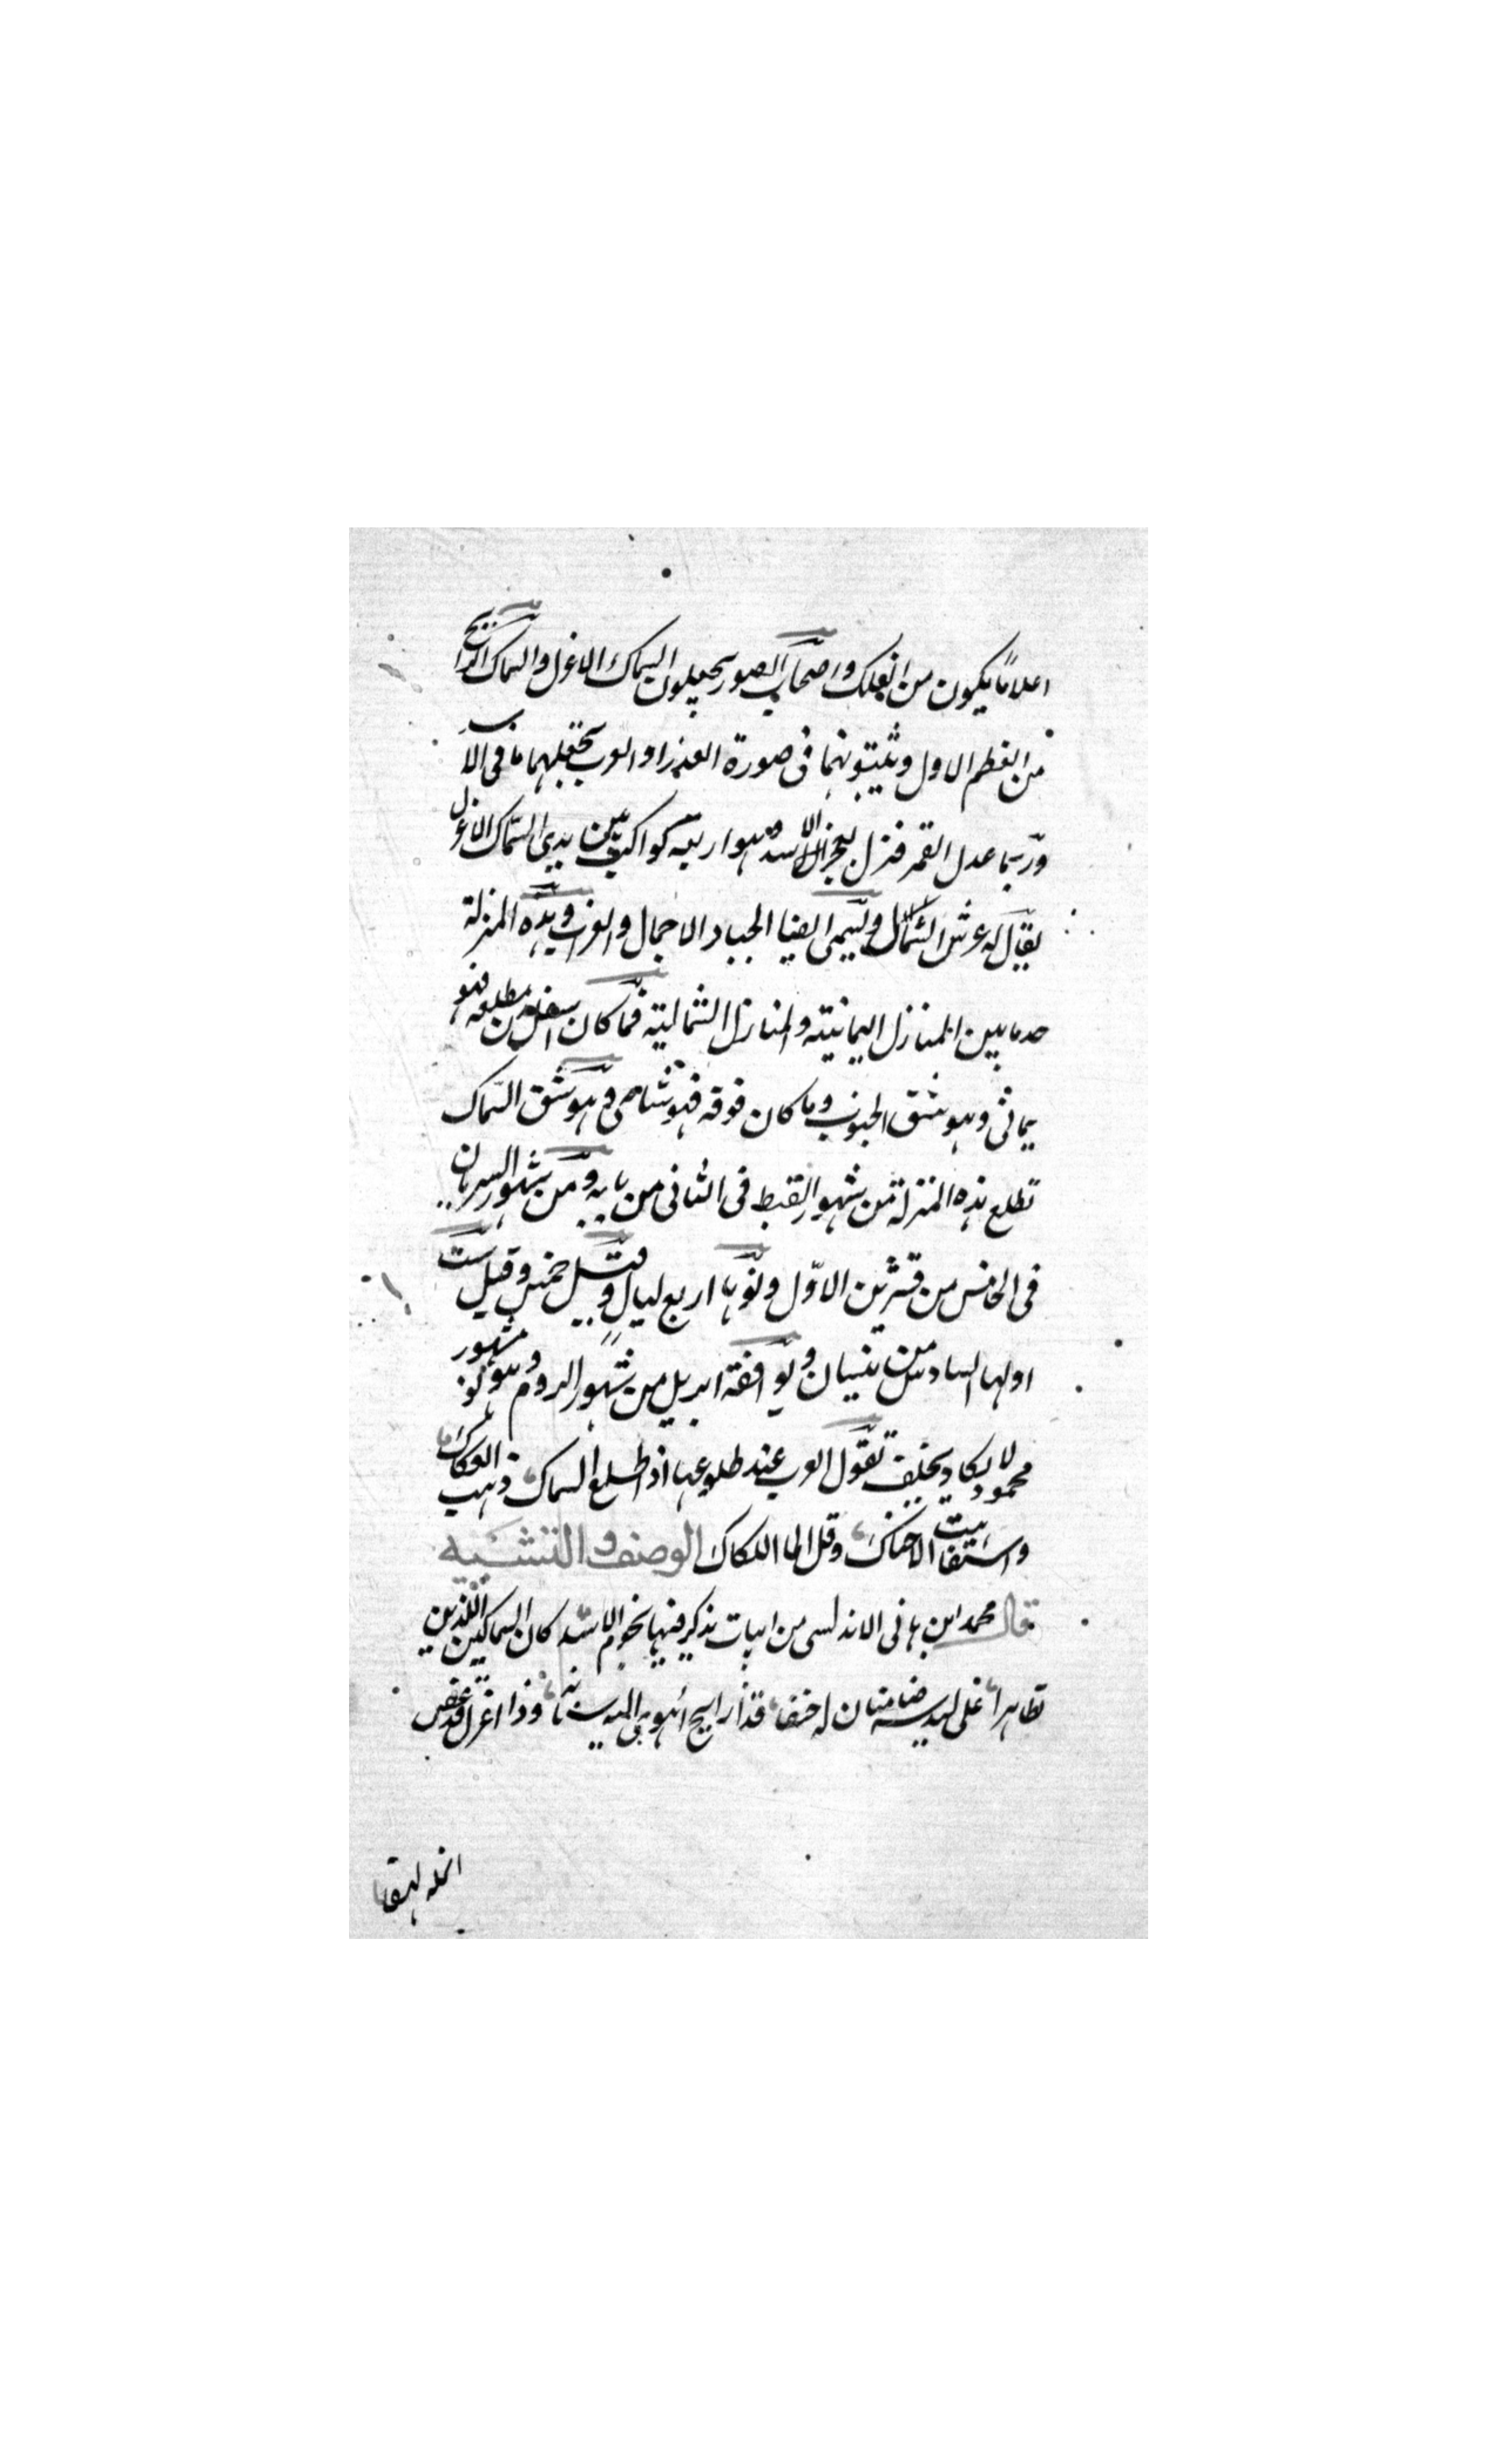 اعلاما يكون من الفلك واصحاب الصور يجعلون السماك الاعزل والسماك الرامح
من النظم الاول ويثبتونهما فى صورة العذرا والعرب تجعلهما ساقى الاسد
وربما عدل القمر فنزل بعجز الاسد وهو اربعة كواكب بين يدى السماك الاعزل
يقال له عرش السماك ويسمى ايضا الخباء والاحمال والغراب وهذه المنزلة
حد ما بين المنازل اليمانية والمنازل الشمالية فما كان اسفل من مطلعه فهو
يمانى وهو شق الجنوب وما كان فوقه فهو شامى وهو شق السماك
تطلع هذه المنزلة من شهور القبط فى الثانى من بابه ومن شهور السريان
فى الخامس من تشرين الاول ونوها اربع ليال وقيل خمس وقيل ست
اولها السادس من نيسان ويوافقه ابريل من شهور الروم وهو نو مشهور
محمود لا يكاد يخلف تقول العرب عند طلوعها اذا طلع السماك ذهب العكاك
واستفات الاحناك وقل الما اللكاك الوصف والتشبيه
قال محمد ابن هانى الاندلسى من ابيات يذكر فيها نجوم الاسد كان السماكين اللذين
تظاهرا على لبدتيه ضامنان له حتفا فذا رامح اهوى اليه سنانه وذا اعزل قد عض
انمله لهفا